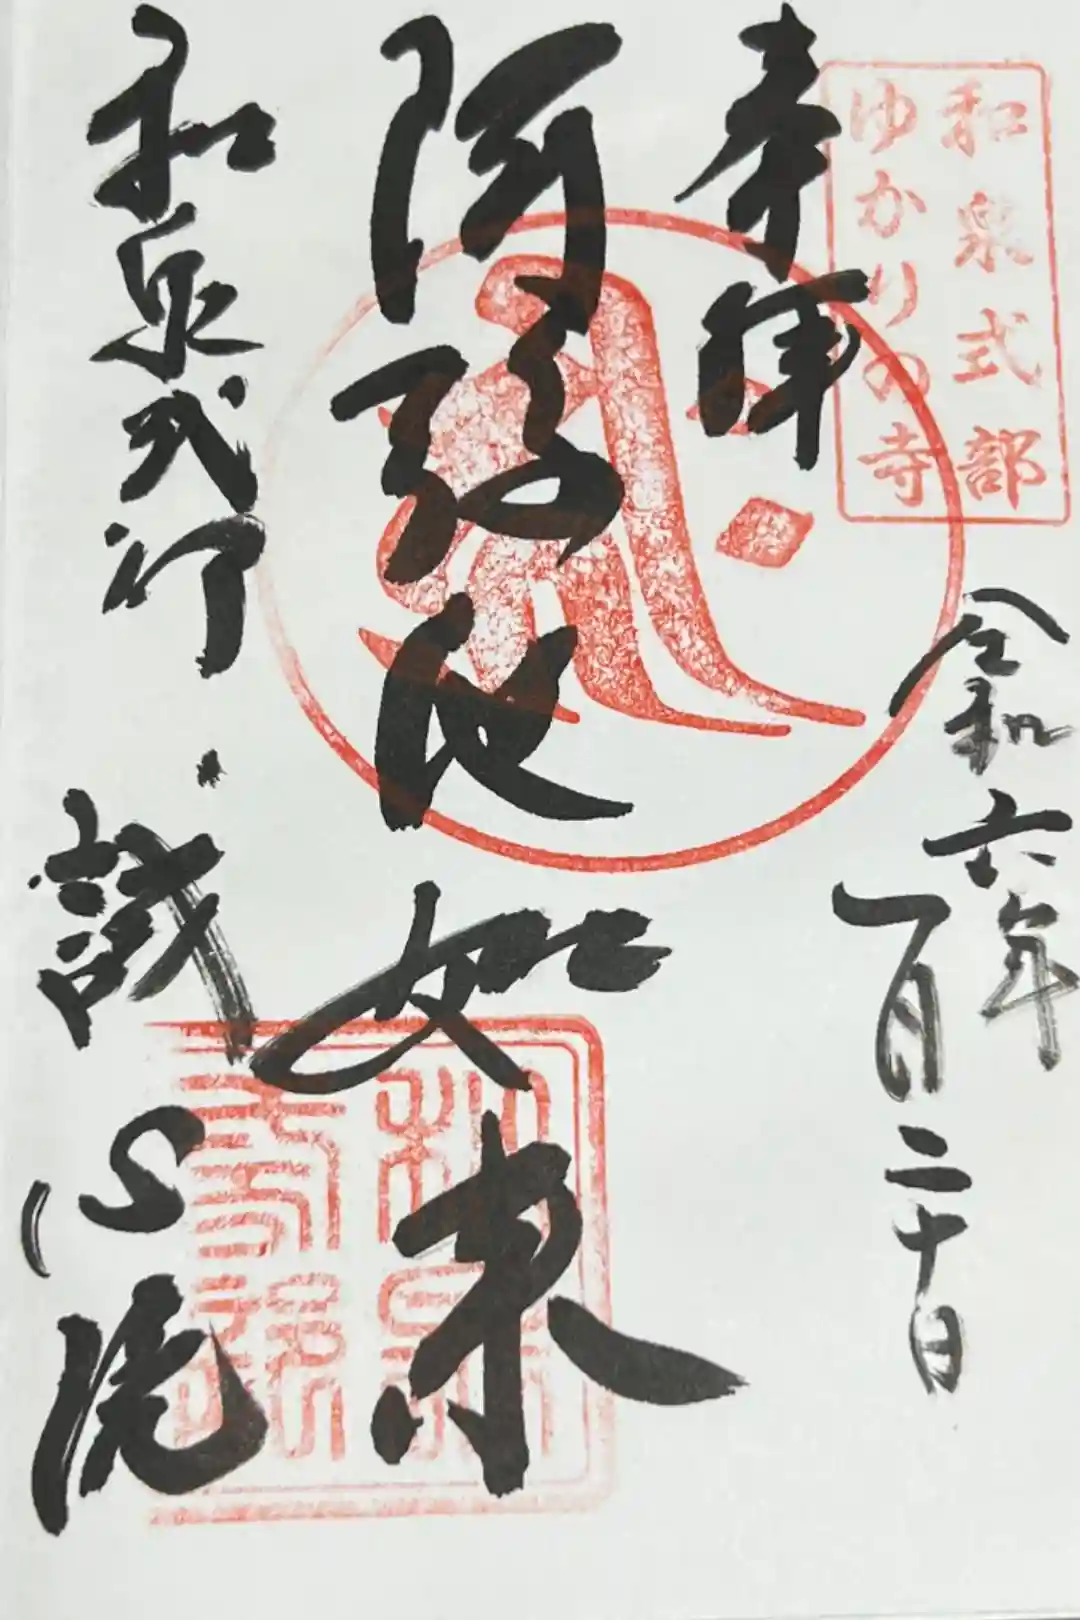 和泉式部
ゆかりの寺
奉拝
令和六年
一月二十日
阿弥陀如来
和泉式部
誠心院